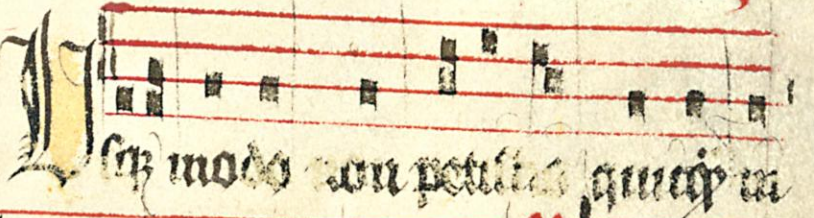 Usqꝫ modo non petistis quicqͥ in